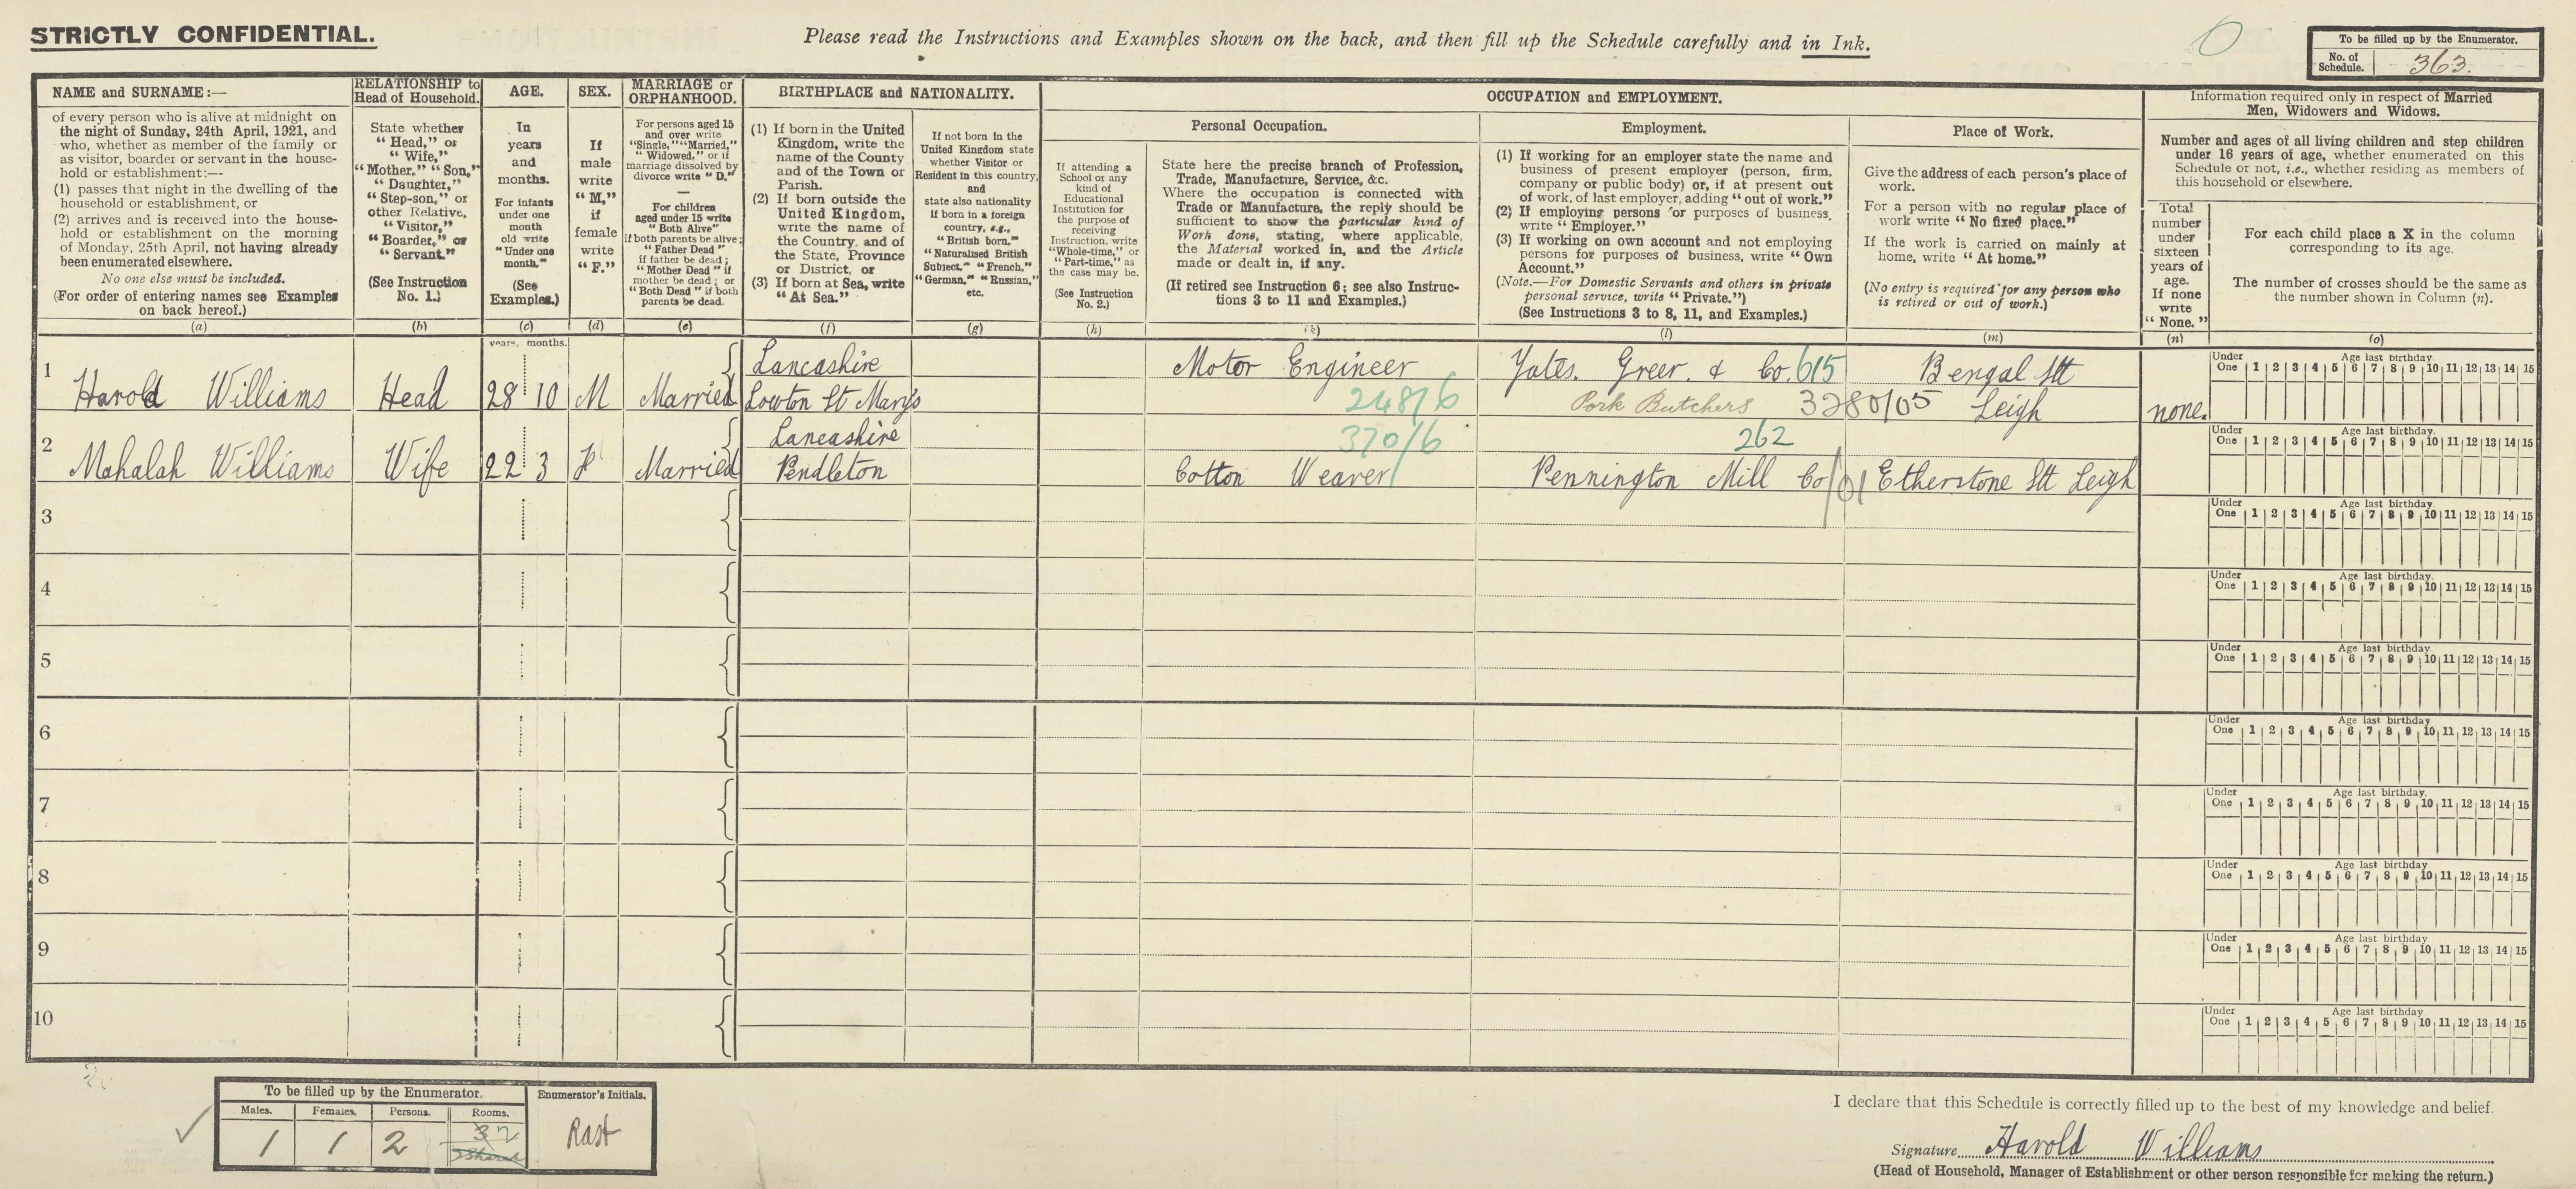 STRICTLY CONFIDENTIAL.
Please read the Instructions and Examples shown on the back, and then fill up the Schedule carefully and in Ink.
To be filled up by the Enumerator.
No. of Schedule. 363.
NAME and SURNAME:—
of every person who is alive at midnight on
the night of Sunday, 24th April, 1921, and
who, whether as member of the family or
as visitor, boarder or servant in the house-
hold or establishment:—
(1) passes that night in the dwelling of the
household or establishment, or
(2) arrives and is received into the house-
hold or establishment on the morning
of Monday, 25th April, not having already
been enumerated elsewhere.
No one else must be included.
(For order of entering names see Examples
on back hereof.)
(a)
RELATIONSHIP to
Head of Household.
State whether
"Head," or
"Wife,"
"Mother," "Son,"
"Daughter,"
"Step-son," or
other Relative,
"Visitor,"
"Boarder," or
"Servant."
(See Instruction
No. 1.)
(b)
AGE.
In
years
and
months.
For infants
under one
month
old write
"Under one
month."
(See
Examples.)
(c)
SEX.
If
male
write
"M,"
if
female
write
"F."
(d)
MARRIAGE or
ORPHANHOOD.
For persons aged 15
and over write
"Single," "Married,"
"Widowed," or if
marriage dissolved by
divorce write "D."
—
For children
aged under 15 write
"Both Alive"
if both parents be alive;
"Father Dead"
if father be dead;
"Mother Dead" if
mother be dead; or
"Both Dead" if both
parents be dead.
(e)
BIRTHPLACE and NATIONALITY.
(1) If born in the United
Kingdom, write the
name of the County
and of the Town or
Parish.
(2) If born outside the
United Kingdom,
write the name of
the Country, and of
the State, Province
or District, or
(3) If born at Sea, write
"At Sea."
(f)
If not born in the
United Kingdom state
whether Visitor or
Resident in this country,
and
state also nationality
if born in a foreign
country, e.g.,
"British born."
"Naturalised British
Subject." "French,"
"German," "Russian,"
etc.
(g)
OCCUPATION and EMPLOYMENT.
Personal Occupation.
If attending a
School or any
kind of
Educational
Institution for
the purpose of
receiving
Instruction, write
"Whole-time," or
"Part-time," as
the case may be.
(See Instruction
No. 2.)
(h)
State here the precise branch of Profession,
Trade, Manufacture, Service, &c.
Where the occupation is connected with
Trade or Manufacture, the reply should be
sufficient to show the particular kind of
Work done, stating, where applicable,
the Material worked in, and the Article
made or dealt in, if any.
(If retired see Instruction 6; see also Instruc-
tions 3 to 11 and Examples.)
(k)
Employment.
(1) If working for an employer state the name and
business of present employer (person, firm,
company or public body) or, if at present out
of work, of last employer, adding "out of work."
(2) If employing persons for purposes of business,
write "Employer."
(3) If working on own account and not employing
persons for purposes of business, write "Own
Account."
(Note.—For Domestic Servants and others in private
personal service, write "Private.")
(See Instructions 3 to 8, 11, and Examples.)
(l)
Place of Work.
Give the address of each person's place of
work.
For a person with no regular place of
work write "No fixed place."
If the work is carried on mainly at
home, write "At home."
(No entry is required for any person who
is retired or out of work.)
(m)
Information required only in respect of Married
Men, Widowers and Widows.
Number and ages of all living children and step children
under 16 years of age, whether enumerated on this
Schedule or not, i.e., whether residing as members of
this household or elsewhere.
Total
number
under
sixteen
years of
age.
If none
write
"None."
(n)
For each child place a X in the column
corresponding to its age.
The number of crosses should be the same as
the number shown in Column (n).
(o)
years. months.
1 Harold Williams Head 28 10 M Married Lancashire Lowton St Mary's Motor Engineer 248/6 Yates. Greer. & Co. 615 Pork Butchers 3280/05 Bengal Stt Leigh none.
Under One 1 2 3 4 5 6 7 8 9 10 11 12 13 14 15 Age last birthday.
2 Mahalah Williams Wife 22 3 F Married Lancashire Pendleton 370/6 Cotton Weaver 262 Pennington Mill Co /01 Etherstone Stt Leigh
Under One 1 2 3 4 5 6 7 8 9 10 11 12 13 14 15 Age last birthday.
3
Under One 1 2 3 4 5 6 7 8 9 10 11 12 13 14 15 Age last birthday.
4
Under One 1 2 3 4 5 6 7 8 9 10 11 12 13 14 15 Age last birthday.
5
Under One 1 2 3 4 5 6 7 8 9 10 11 12 13 14 15 Age last birthday.
6
Under One 1 2 3 4 5 6 7 8 9 10 11 12 13 14 15 Age last birthday.
7
Under One 1 2 3 4 5 6 7 8 9 10 11 12 13 14 15 Age last birthday.
8
Under One 1 2 3 4 5 6 7 8 9 10 11 12 13 14 15 Age last birthday
9
Under One 1 2 3 4 5 6 7 8 9 10 11 12 13 14 15 Age last birthday
10
Under One 1 2 3 4 5 6 7 8 9 10 11 12 13 14 15 Age last birthday
To be filled up by the Enumerator.
Males. Females. Persons. Rooms.
1 1 2
Enumerator's Initials.
I declare that this Schedule is correctly filled up to the best of my knowledge and belief.
Signature Harold Williams
(Head of Household, Manager of Establishment or other person responsible for making the return.)